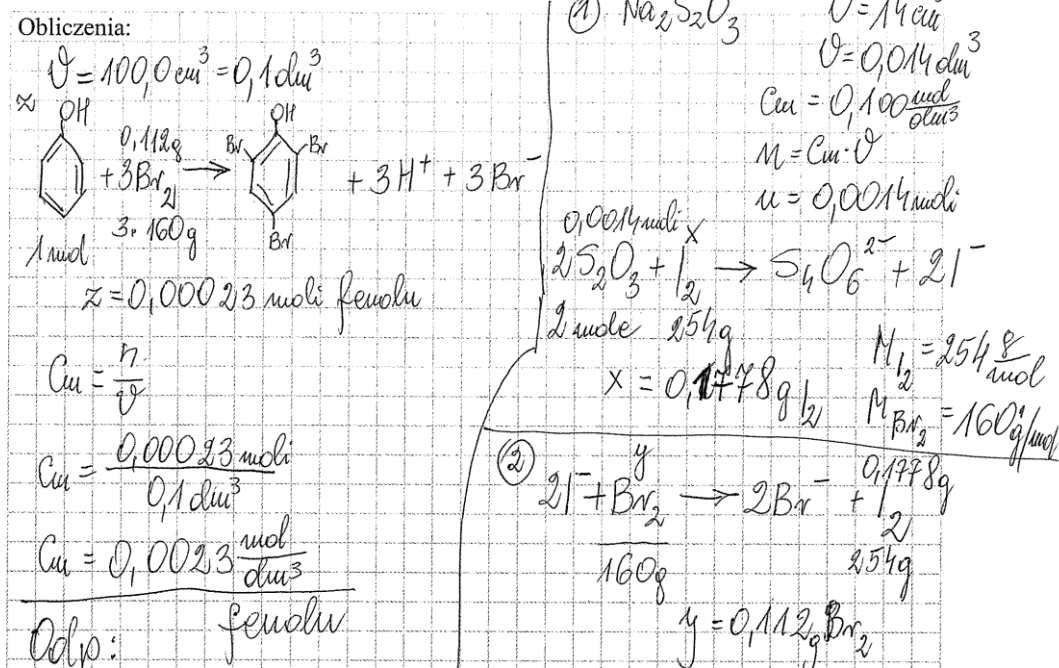 Obliczenia:
ϑ = 100,0 cm³ = 0,1 dm³
z
OH
0,112g
+ 3Br₂ →
3·160g
1 mol
OH
Br Br
Br
+ 3H⁺ + 3Br⁻
z = 0,00023 moli fenolu
Cm = n/ϑ
Cm = 0,00023 moli / 0,1 dm³
Cm = 0,0023 mol/dm³
fenolu
Odp:
① Na₂S₂O₃
ϑ = 14 cm³
ϑ = 0,014 dm³
Cm = 0,100 mol/dm³
n = Cm·ϑ
n = 0,0014 moli
0,0014 moli x
2S₂O₃ + I₂ → S₄O₆²⁻ + 2I⁻
2 mole 254g
x = 0,1778g I₂
M I₂ = 254 g/mol
M Br₂ = 160 g/mol
②
y 0,1778g
2I⁻ + Br₂ → 2Br⁻ + I₂
160g 254g
y = 0,112g Br₂